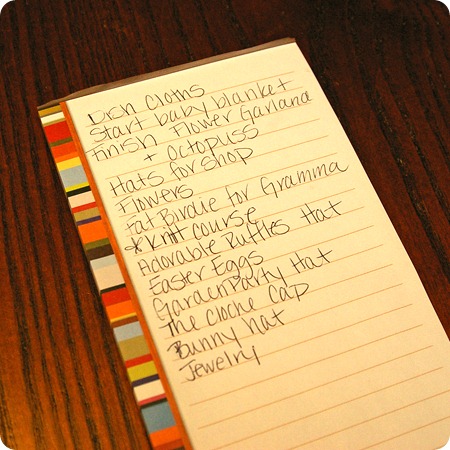 Dish Cloths
Start baby blanket
Finish Flower Garland
+ Octopuss
Hats for Shop
Flowers
Fat Birdie for Gramma
*Knit course
Adorable Ruffles Hat
Easter Eggs
Garden Party Hat
The Cloche Cap
Bunny hat
Jewelry